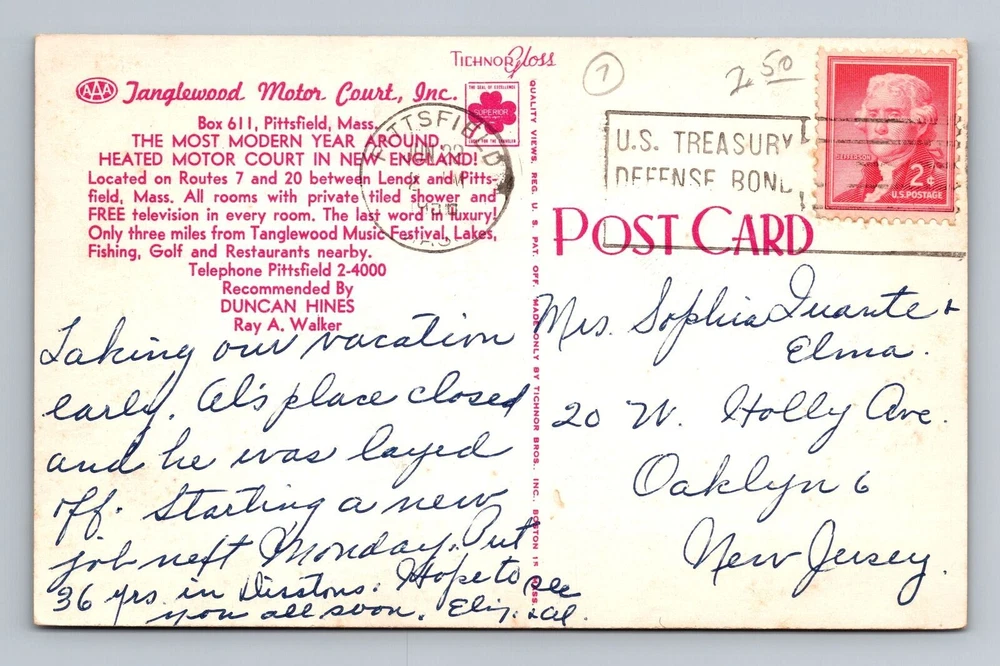 TICHNOR Gloss
1
2 50
AAA Tanglewood Motor Court, Inc.
THE SEAL OF EXCELLENCE
SUPERIOR
Box 611, Pittsfield, Mass.
THE MOST MODERN YEAR AROUND
HEATED MOTOR COURT IN NEW ENGLAND!
Located on Routes 7 and 20 between Lenox and Pitts-
field, Mass. All rooms with private tiled shower and
FREE television in every room. The last word in luxury!
Only three miles from Tanglewood Music Festival, Lakes,
Fishing, Golf and Restaurants nearby.
Telephone Pittsfield 2-4000
Recommended By
DUNCAN HINES
Ray A. Walker
PITTSFIELD
JUN 22
MASS.
U.S. TREASURY
DEFENSE BOND
JEFFERSON
2¢
U.S. POSTAGE
POST CARD
QUALITY VIEWS, REG. U. S. PAT. OFF. MADE ONLY BY TICHNOR BROS., INC., BOSTON 15, MASS.
Taking our vacation
early. Al's place closed
and he was layed
off. Starting a new
job next Monday. Put
36 yrs. in Disstons. Hope to see
you all soon. Eliz. & Al.
Mrs. Sophia Iuante &
Elma.
20 W. Holly Ave.
Oaklyn 6
New Jersey.